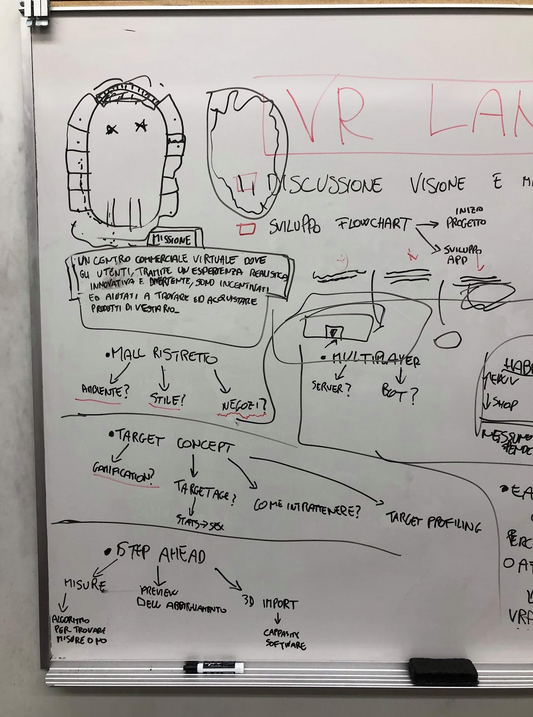 VR LAN
DISCUSSIONE VISIONE E M
SVILUPPO FLOWCHART → INIZIO
PROGETTO
SVILUPPO
APP
MISSIONE
UN CENTRO COMMERCIALE VIRTUALE DOVE
GLI UTENTI, TRAMITE UN'ESPERIENZA REALISTICA
INNOVATIVA E DIVERTENTE, SONO INCENTIVATI
ED AIUTATI A TROVARE ED ACQUISTARE
PRODOTTI DI VESTIARIO.
• MALL RISTRETTO
AMBIENTE?
STILE?
NEGOZI?
• MULTIPLAYER
SERVER?
BOT?
HAB
SHOP
NESSUN
• TARGET CONCEPT
GAMIFICATION?
TARGET AGE?
STATS → SEX
COME INTRATTENERE?
TARGET PROFILING
• 1 STEP AHEAD
MISURE
ALGORITMO
PER TROVARE
MISURE O NO
PREVIEW
DELL'ABBIGLIAMENTO
3D IMPORT
CAPPASITY
SOFTWARE
EA
PERC
O A
VRA